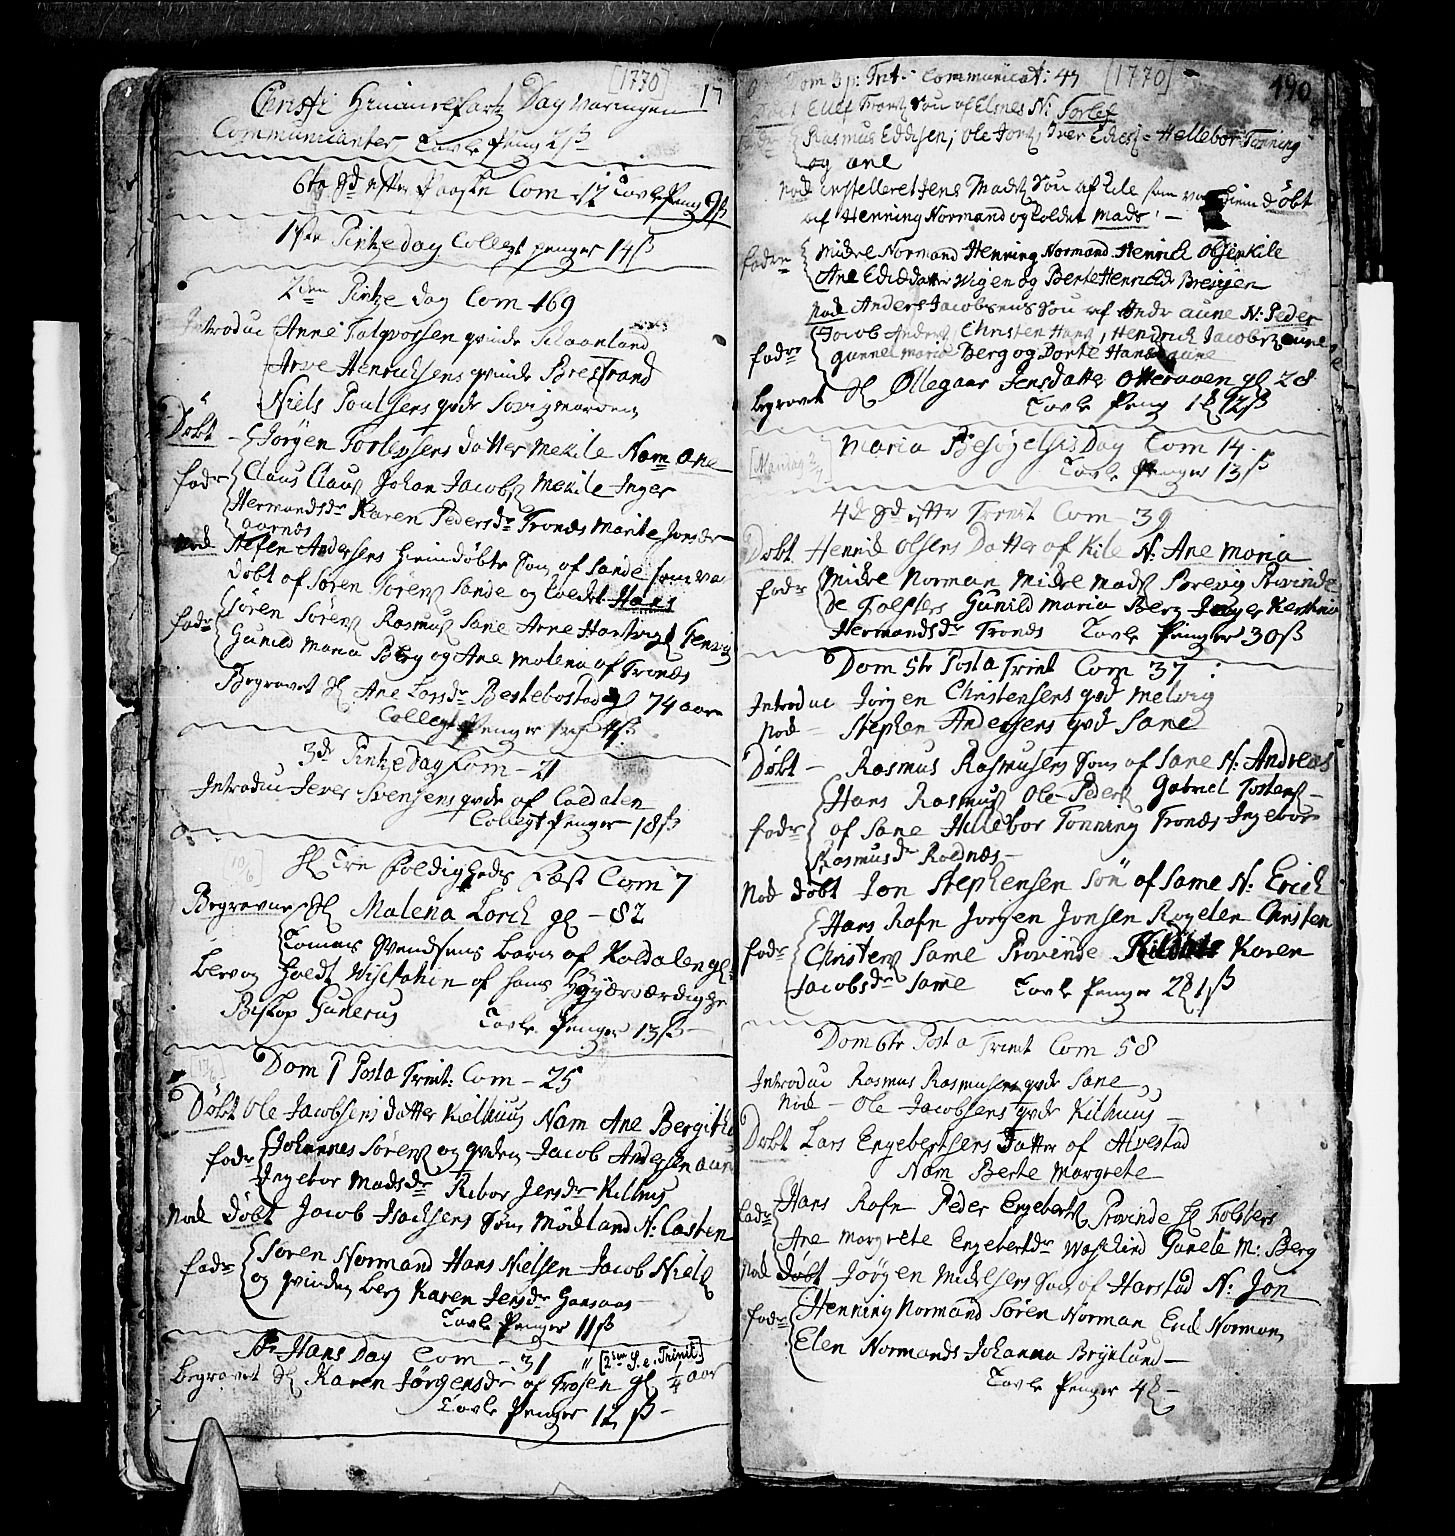 [1770] 17
Christi Himmelfartz Day var ingen
Communicanter, Tavle Peng 2ß
6te Sd efter Paaske Com - 12 Tavle Peng 9ß
1ste Pintzedag Collegt penger 14ß
2den Pintze dag Com 169
Introduc Anne qvinde
Arne Henrichsens qvinde Brestrand
Niels Poulsens qvde
Døbt - Jørgen Torlefsens datter Mekile Nam Ane
fadr Claus Claus Johan Jacobs Mekile Inger
Hermandsdr Karen Pedersdr Tronæs Marite Jonsdr
aarnæs
Nod Andersens hiemdøbte Søn af Sande som va
døbt af Søren Sørens Sande og kaldet Hans
fadr Søren Sørens Rasmus Sane Arne Hartvigs
Gunild Maria Berg og Ane Malena af Tronæs
Begravet Sl Ane Larsdr gl 74 aar
Collegt Penger
3de Pintzedag Com - 21
Introduc Iver Svensens qvde af Coldalen
Collegt Penger 18ß
[10/6] Hl Tre foldigheds Fæst Com 7
Begravne Sl Malena Lorch gl - 82
Svendsens barn af Koldalen gl
blev og holdt Visitatzin af hans Høyærværdighe
Biskop Gunerus Tavle Penger 13ß
[17/6] Dom 1 Post a Trinit: Com - 25
Døbt Ole Jacobsens datter Kielhuus Nam Ane Bergitha
fadr Johannes Sørens og qvden Jacob Andersen aune
Ingebor Madsdr Ribor Jensdr Kilhus
Nod døbt Jacob Isachsens Søn Mødland N: Casten
fadr Søren Normand Hans Nielsen Jacob Niels
og qvinden berg Karen Jensdr Gansaas
Tavle Penger 11ß
St Hans Day Com - 31 " [2den S. e. Trinit.]
Begravet Sl Karen Jørgensdr af Trosen gl 1/4 aar
Tavle Penger 12 ß
Dom 3 p: Trit - Communicat: 47 [1770] 190
Døbt Ellef Søn af Elsnes N: Torlef
Rasmus Edisen; Ole Iver Hellebor Tonning
og ane
Nod Instelleret Jens Mads Søn af Kile som var hiem døbt
af Henning Normand og kaldet Mads -
fadre Mickel Normand Henning Normand Henrich Olsen Kile
Ane Edisdatter Vigen og Berte Henrichdr
Nod Anders Jacobsens Søn af aune N: Peder
fadre Jacob Anders Christen Hans, Hendrich Jacobs aune
gunnel maria Berg og Dorte Hans aune
begravet Sl Ollegaar Jensdatter Otteraaen gl 28
Tavle Peng 1 12ß
[Mandag 2/7] Maria Besøgelsis Day Com 14 -
Tavle Penger 13ß
4de Sd efter Trinit Com - 39
Døbt Henrich Olsens Datter af Kile N: Ane Maria
fadr Mickel Norman Mickel Mads Brevig Provinde
Sl Tolsters Gunild Maria Berg Inger Kerstina
Hermandsdr Tronæs Tavle Penger 30ß
Dom 5te Post a Trinit Com 37 :
Introduc Jørgen Christensens qvd Melvig
Nod - Stephen Andersens qvd Sane
Døbt - Rasmus Rasmusens Søn af Sane N: Andreas
Hans Rasmus Ole Peders Gabriel Tostens -
fadr af Sane Hellebor Tonning Tronæs Ingebor
Rasmusdr Roldnæs -
Nod døbt Jon Stephensen Søn af Same N: Erich
Hans Rafn Jørgen Jonsen Røgelen Christen
fadr Christens Same Provinde Karen
Jacobsdr Same Tavle Penger 2 1ß
Dom 6te Post a Trinit Com 58
Introduc Rasmus Rasmusens qvde Sane
Nod - Ole Jacobsens qvde Kilhuus -
Døbt Lars Engebertsens Datter af Alvestad
Nam Berte Margrete
fadr Hans Rafn Peder Engeberts Provinde Sl Tolsters
Ane Margrete Engebertdr Gunele M: Berg
Nod døbt Jørgen Mickelsens Søn af Harstad N: Jon
fadr Henning Normand Søren Norman Erich Norman
Elen Normands Johanna Bryklund -
Tavle Penger 4 -